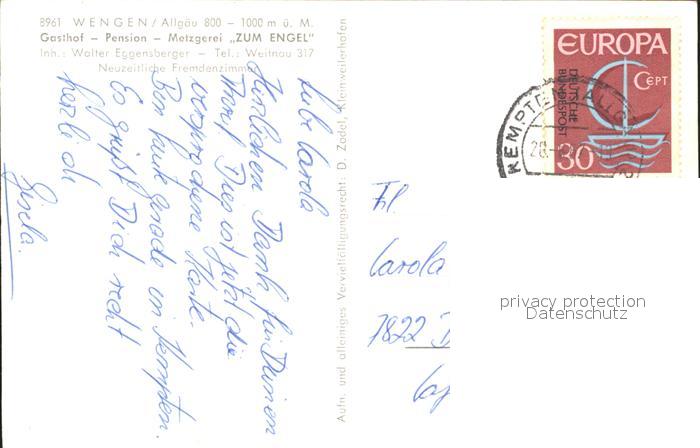 8961 WENGEN / Allgäu 800 – 1000 m ü. M.
Gasthof – Pension – Metzgerei „ZUM ENGEL"
Inh.: Walter Eggensberger – Tel.: Weitnau 317
Neuzeitliche Fremdenzimmer
Liebe Carola
Herzlichen Dank für Deinen
Brief. Dies ist jetzt die
versprochene Karte.
Bin heute gerade in Kempten.
Es grüßt Dich recht
herzlich
Gisela.
Aufn. und alleiniges Vervielfältigungsrecht: D. Zedel, Kleinweilerhofen
EUROPA
CEPT
DEUTSCHE
BUNDESPOST
30
KEMPTEN (ALLG
28.
Frl.
Carola
7822
privacy protection
Datenschutz